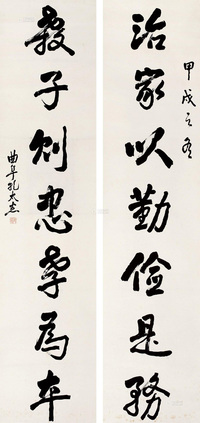 治家以勤俭是務
甲戌之冬
教子則忠孝為本
曲阜孔